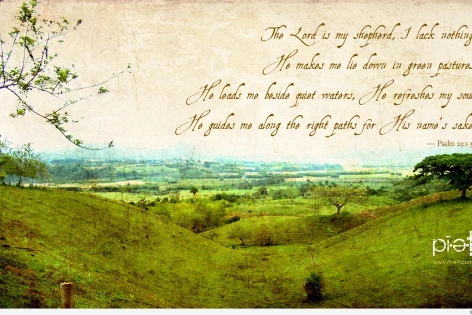 The Lord is my shepherd, I lack nothing
He makes me lie down in green pastures
He leads me beside quiet waters, He refreshes my sou
He guides me along the right paths for His name's sake
— Psalm 23:1-3